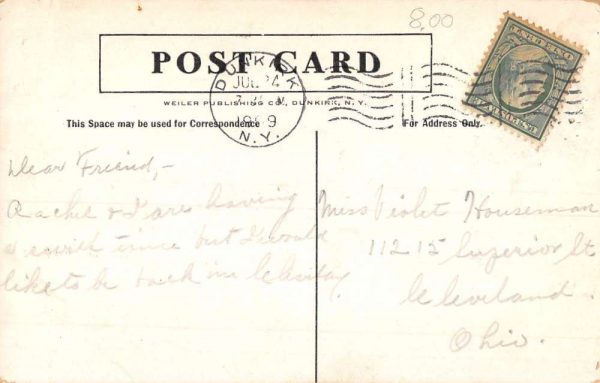 8.00
POST CARD
DUNKIRK
JUL 24
1909
N.Y.
WEILER PUBLISHING CO., DUNKIRK, N. Y.
This Space may be used for Correspondence
For Address Only.
Dear Friend,-
Rachel & I are having
a swell time but I would
like to be back in
Miss Violet Houseman
11215 Superior St
Cleveland.
Ohio.